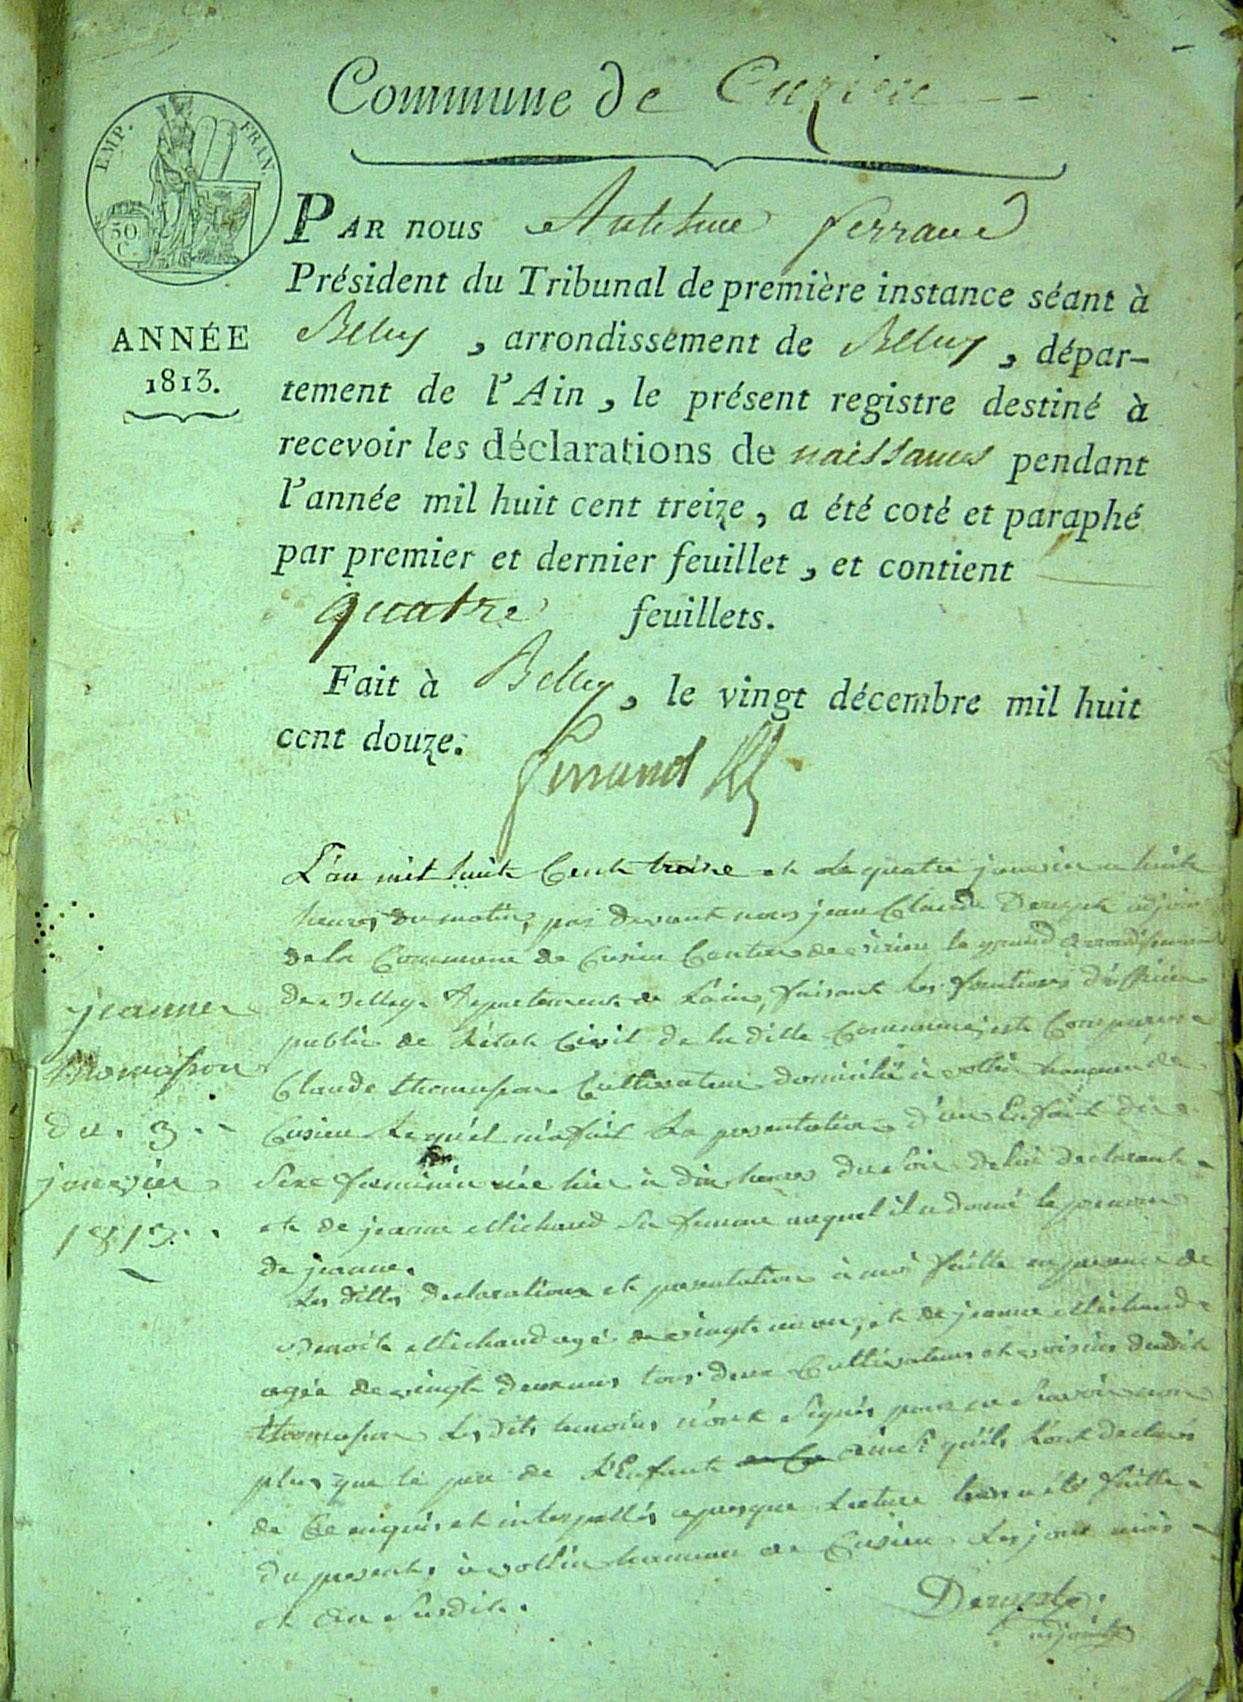 Commune de Cuzieu
EMP. FRAN.
50
C.
PAR nous Anthelme Ferrand
Président du Tribunal de première instance séant à
Belley, arrondissement de Belley, dépar-
tement de l'Ain, le présent registre destiné à
recevoir les déclarations de naissances pendant
l'année mil huit cent treize, a été coté et paraphé
par premier et dernier feuillet, et contient
quatre feuillets.
Fait à Belley, le vingt décembre mil huit
cent douze.
Ferrand
ANNÉE
1813.
jeanne
thomasson
du 3
janvier
1813
L'an mil huit Cent treize et le quatre janvier a huit
heures du matin, par devant nous jean Claude adjoint
de la Commune de Cusieu Canton de virieu le grand arrondissement
de Belley Departement de Lain, faisant les fonctions d'officier
public de l'état Civil de la ditte Commune, est Comparu
Claude thomasson Cultivateur domicilié a vollin hameau de
Cusieu Lequel m'a fait La presentation d'un Enfant du
Sexe feminin née hier à dix heures du soir de lui declarant
et de jeanne Michaud sa femme auquel il a donné le prenom
de jeanne.
Les dittes declarations et presentation à moi faitte en presence de
Benoit Michaud agé de vingt un an, et de jeanne Michaud
agée de vingt deux ans tous deux Cultivateurs et voisins dudit
thomasson Les dits temoins n'ont Signés pour ne Scavoir non
plus que le pere de l'Enfant ainsi qu'ils l'ont declarés
de Ce enquis et interpellés apres que Lecture leur a été faitte
du present, à vollin hameau de Cusieu Les jour mois
et an Susdit.
adjoint